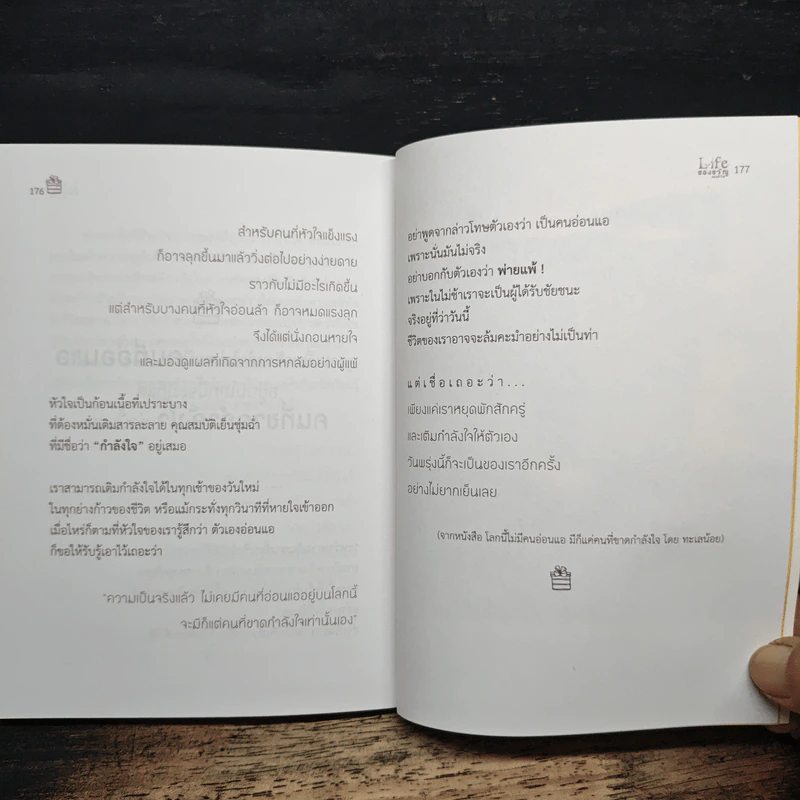 176
สำหรับคนที่หัวใจแข็งแรง
ก็อาจลุกขึ้นมาแล้ววิ่งต่อไปอย่างง่ายดาย
ราวกับไม่มีอะไรเกิดขึ้น
แต่สำหรับบางคนที่หัวใจอ่อนล้า ก็อาจหมดแรงลุก
จึงได้แต่นั่งถอนหายใจ
และมองดูแผลที่เกิดจากการหกล้มอย่างผู้แพ้
หัวใจเป็นก้อนเนื้อที่เปราะบาง
ที่ต้องหมั่นเติมสารละลาย คุณสมบัติเย็นชุ่มฉ่ำ
ที่มีชื่อว่า “กำลังใจ” อยู่เสมอ
เราสามารถเติมกำลังใจได้ในทุกเช้าของวันใหม่
ในทุกย่างก้าวของชีวิต หรือแม้กระทั่งทุกวินาทีที่หายใจเข้าออก
เมื่อไหร่ก็ตามที่หัวใจของเรารู้สึกว่า ตัวเองอ่อนแอ
ก็ขอให้รับรู้เอาไว้เถอะว่า
"ความเป็นจริงแล้ว ไม่เคยมีคนที่อ่อนแออยู่บนโลกนี้
จะมีก็แต่คนที่ขาดกำลังใจเท่านั้นเอง"
Life
ของขวัญ
177
อย่าพูดจากล่าวโทษตัวเองว่า เป็นคนอ่อนแอ
เพราะนั่นมันไม่จริง
อย่าบอกกับตัวเองว่า พ่ายแพ้ !
เพราะในไม่ช้าเราจะเป็นผู้ได้รับชัยชนะ
จริงอยู่ที่ว่าวันนี้
ชีวิตของเราอาจจะล้มคะมำอย่างไม่เป็นท่า
แต่เชื่อเถอะว่า...
เพียงแค่เราหยุดพักสักครู่
และเติมกำลังใจให้ตัวเอง
วันพรุ่งนี้ก็จะเป็นของเราอีกครั้ง
อย่างไม่ยากเย็นเลย
(จากหนังสือ โลกนี้ไม่มีคนอ่อนแอ มีก็แค่คนที่ขาดกำลังใจ โดย ทะเลน้อย)